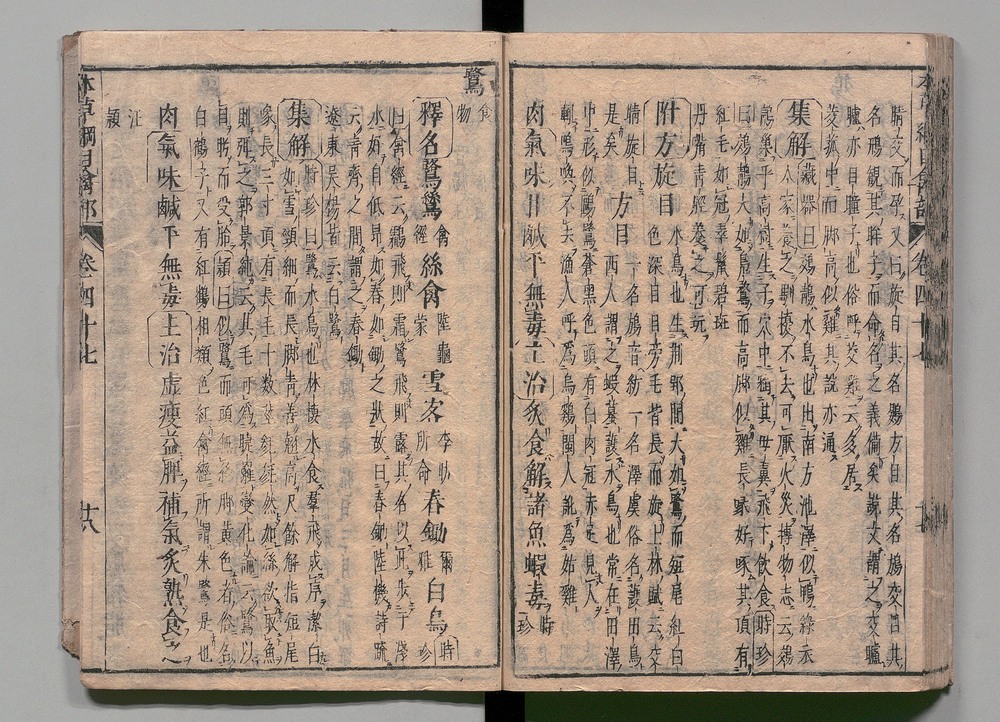 睛交而孕又曰旋目其名鳽方目其名鴋交目其
名鳽觀其眸子而命名之義備矣說文謂之交矑
矑亦目瞳子也俗呼茭雞云多居
茭菰中而脚高似雞其說亦通
集解藏器曰鵁鶄水鳥也出南方池澤似鴨綠衣
人家養之馴擾不去可厭火災博物志云鵁
鶄巢于高樹生子穴中銜其母翼飛下飲食時珍
曰鵁鶄大如鳧鶩而高脚似雞長喙好啄其頂有
紅毛如冠翠鬣碧斑
丹觜青脛養之可玩
附方旋目水鳥也生荊郢間大如鷺而短尾紅白
色深目目旁毛皆長而旋上林賦云交
睛旋目 方目一名鴋音紡一名澤虞俗名護田鳥
是矣 西人謂之蝦蟇護水鳥也常在田澤
中形似鷗鷺蒼黑色頭有白肉冠赤足見人
輒鳴喚不去漁人呼爲烏鷄閩人訛爲姑雞
肉氣味甘鹹平無毒主治炙食解諸魚蝦毒時珍
鷺食物
釋名鷺鷥禽經絲禽陸龜蒙雪客李昉所命舂鋤爾雅白鳥時珍
曰禽經云鸘飛則霜鷺飛則露其名以此步于淺
水好自低昂如舂如鋤之狀故曰舂鋤陸機詩疏
云青齊之間謂之舂鋤
遼東吳楊皆云白鷺
集解時珍曰鷺水鳥也林棲水食羣飛成序潔白
如雪頸細而長脚青善翹高尺餘解指短尾
喙長三寸頂有長毛十數莖毿毿然如絲欲取魚
則弭之郭景純云其毛可爲睫䍦變化論云鷺以
目盻而受胎頴曰似鷺而頭無絲脚黃色者俗名
白鶴子又有紅鶴相類色紅禽經所謂朱鷺是也
肉氣味鹹平無毒主治虛瘦益脾補氣炙熟食之
汪頴
本草綱目禽部 卷四十七 十八